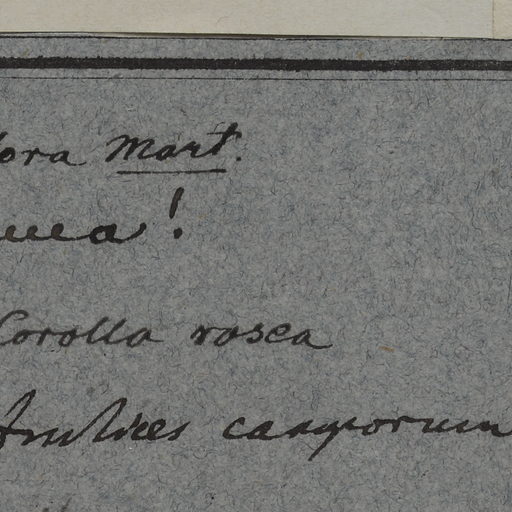 lora Mart.
uea!
Corolla rosea
frutices camporum